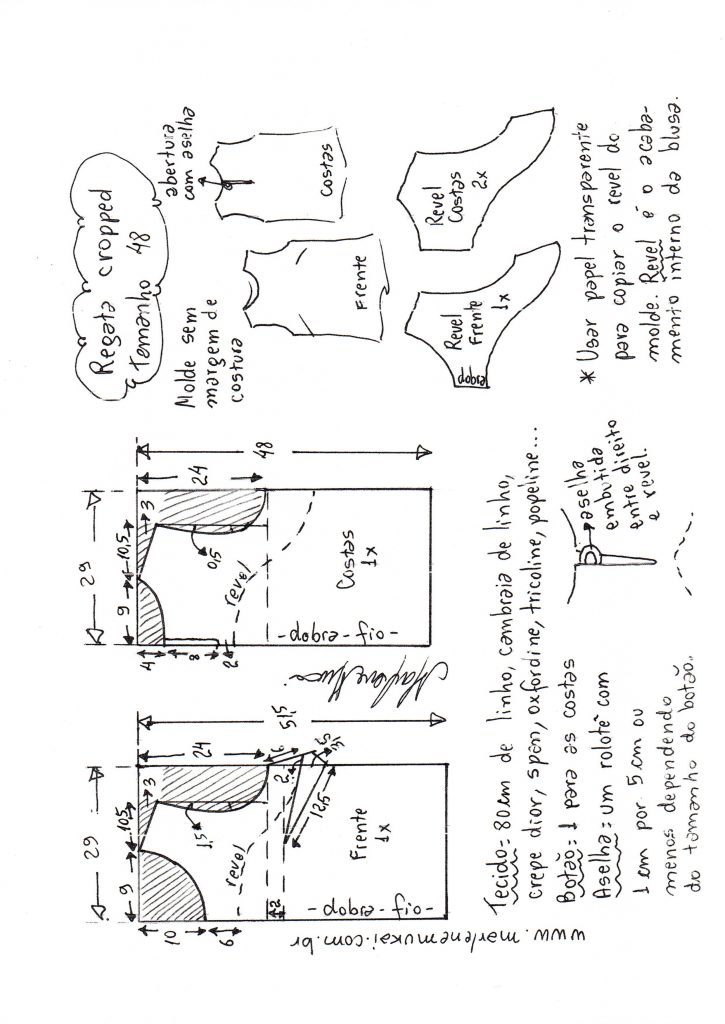 Regata cropped
tamanho 48
Molde sem
margem de
costura
abertura
com aselha
Costas
Frente
Revel
Costas
2x
Revel
Frente
1x
dobra
* Usar papel transparente
para copiar o revel do
molde. Revel é o acaba-
mento interno da blusa.
29
9
10,5
3
24
48
4
8
2
0,5
revel
Costas
1x
-dobra-fio-
29
9
10,5
3
24
51,5
10
6
1,5
revel
6
2
12,5
2
Frente
1x
-dobra-fio-
www.marlenemukai.com.br
Tecido= 80cm de linho, cambraia de linho,
crepe dior, span, oxfordine, tricoline, popeline...
Botão= 1 para as costas
Aselha= um rolotê com
1cm por 5cm ou
menos dependendo
do tamanho do botão.
aselha
embutida
entre direito
e revel.